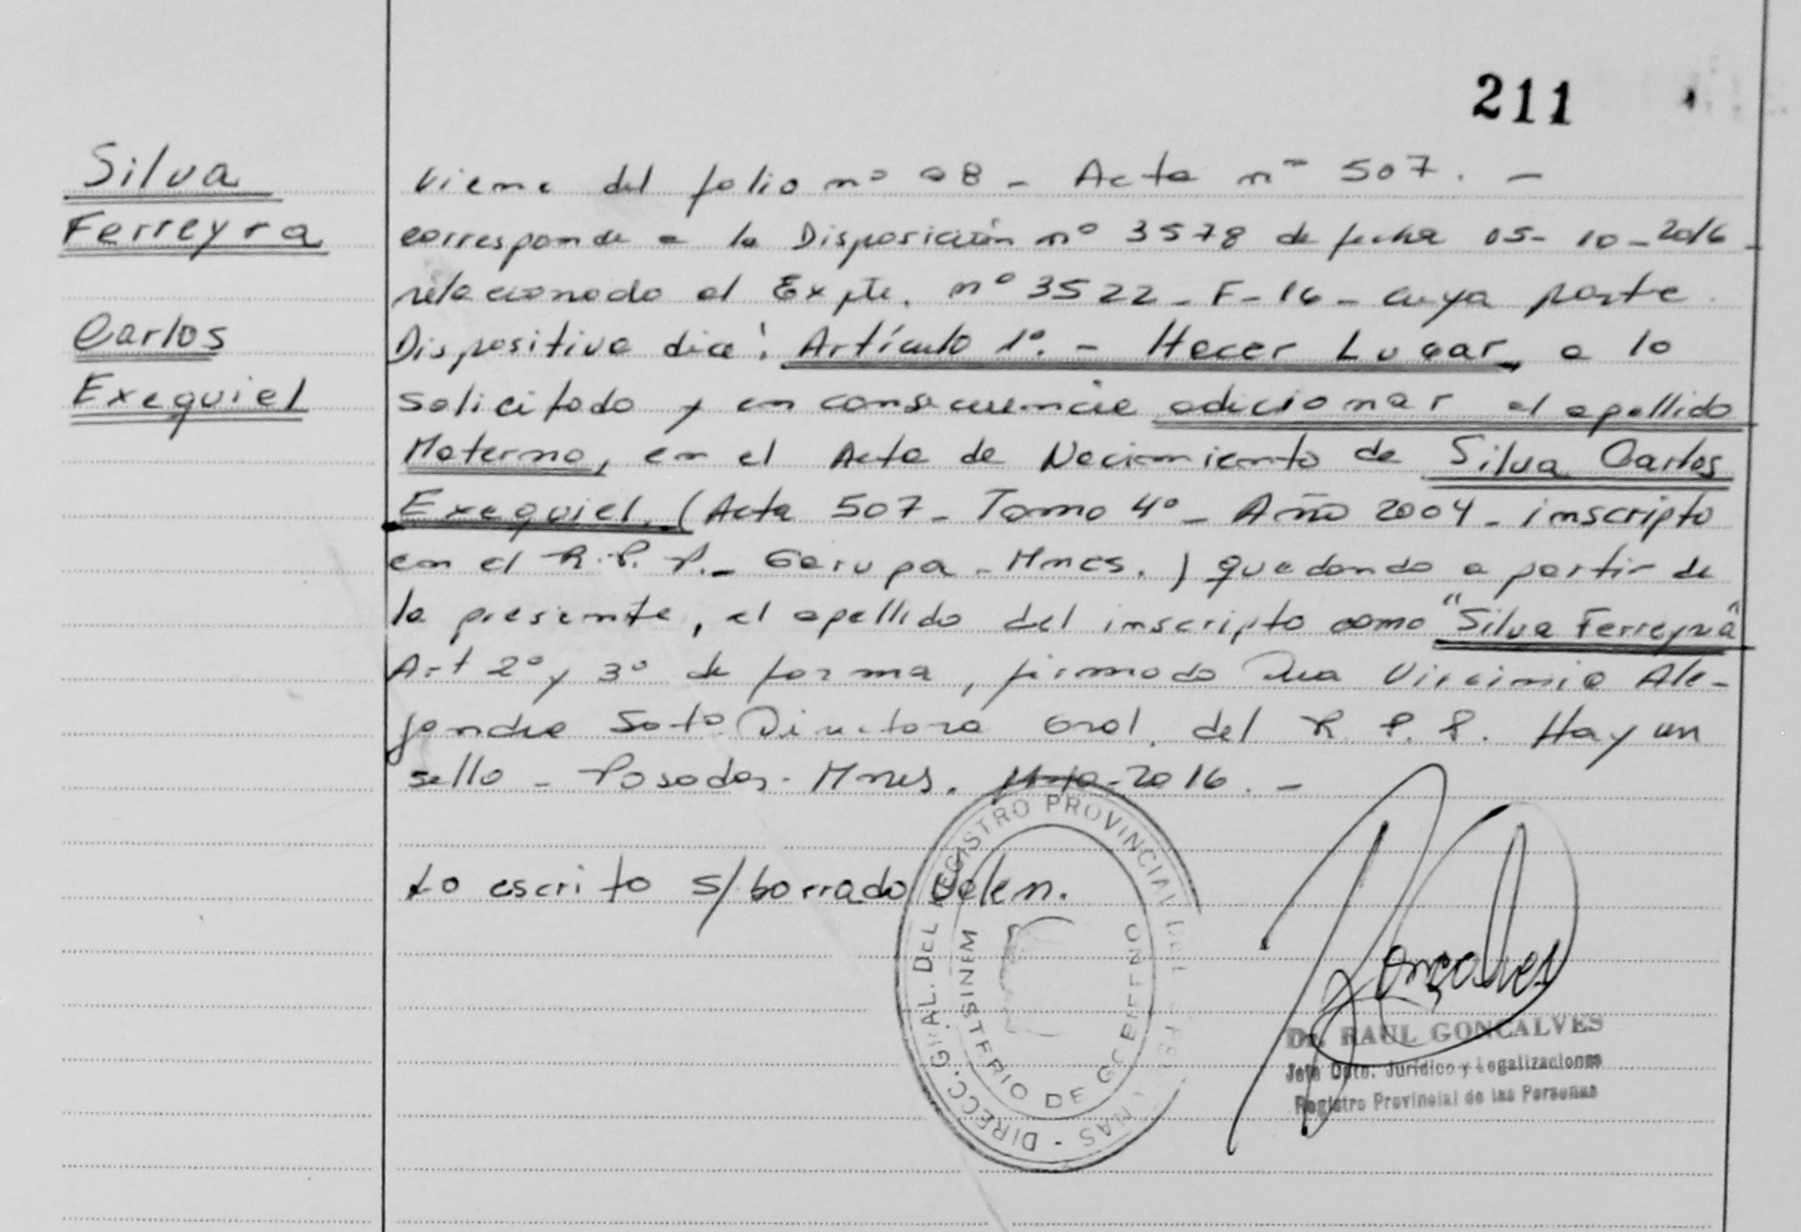 211
Silva
Ferreyra
Carlos
Exequiel
Viene del folio nº 08 - Acta nº 507. -
corresponde a la Disposición nº 3578 de fecha 05-10-2016
relacionado al Expte. nº 3522-F-16- cuya parte
Dispositiva dice: Artículo 1º.- Hacer Lugar a lo
solicitado y en consecuencia adicionar el apellido
Materno, en el Acta de Nacimiento de Silva Carlos
Exequiel, (Acta 507- Tomo 4º- Año 2004- inscripto
en el R.P.P.- Garupa-Mnes.) quedando a partir de
la presente, el apellido del inscripto como "Silva Ferreyra"
Art 2º y 3º de forma, firmado Virginia Ale-
jandra Soto Directora Gral. del R.P.P. Hay un
sello - Posadas-Mnes. -2016.-
Lo escrito s/borrado Valen.
DIRECC. GRAL. DEL REGISTRO PROVINCIAL DE LAS PERSONAS -
MINISTERIO DE GOBIERNO
Goncalves
Dr. RAUL GONCALVES
Jefe Dpto. Jurídico y Legalizaciones
Registro Provincial de las Personas